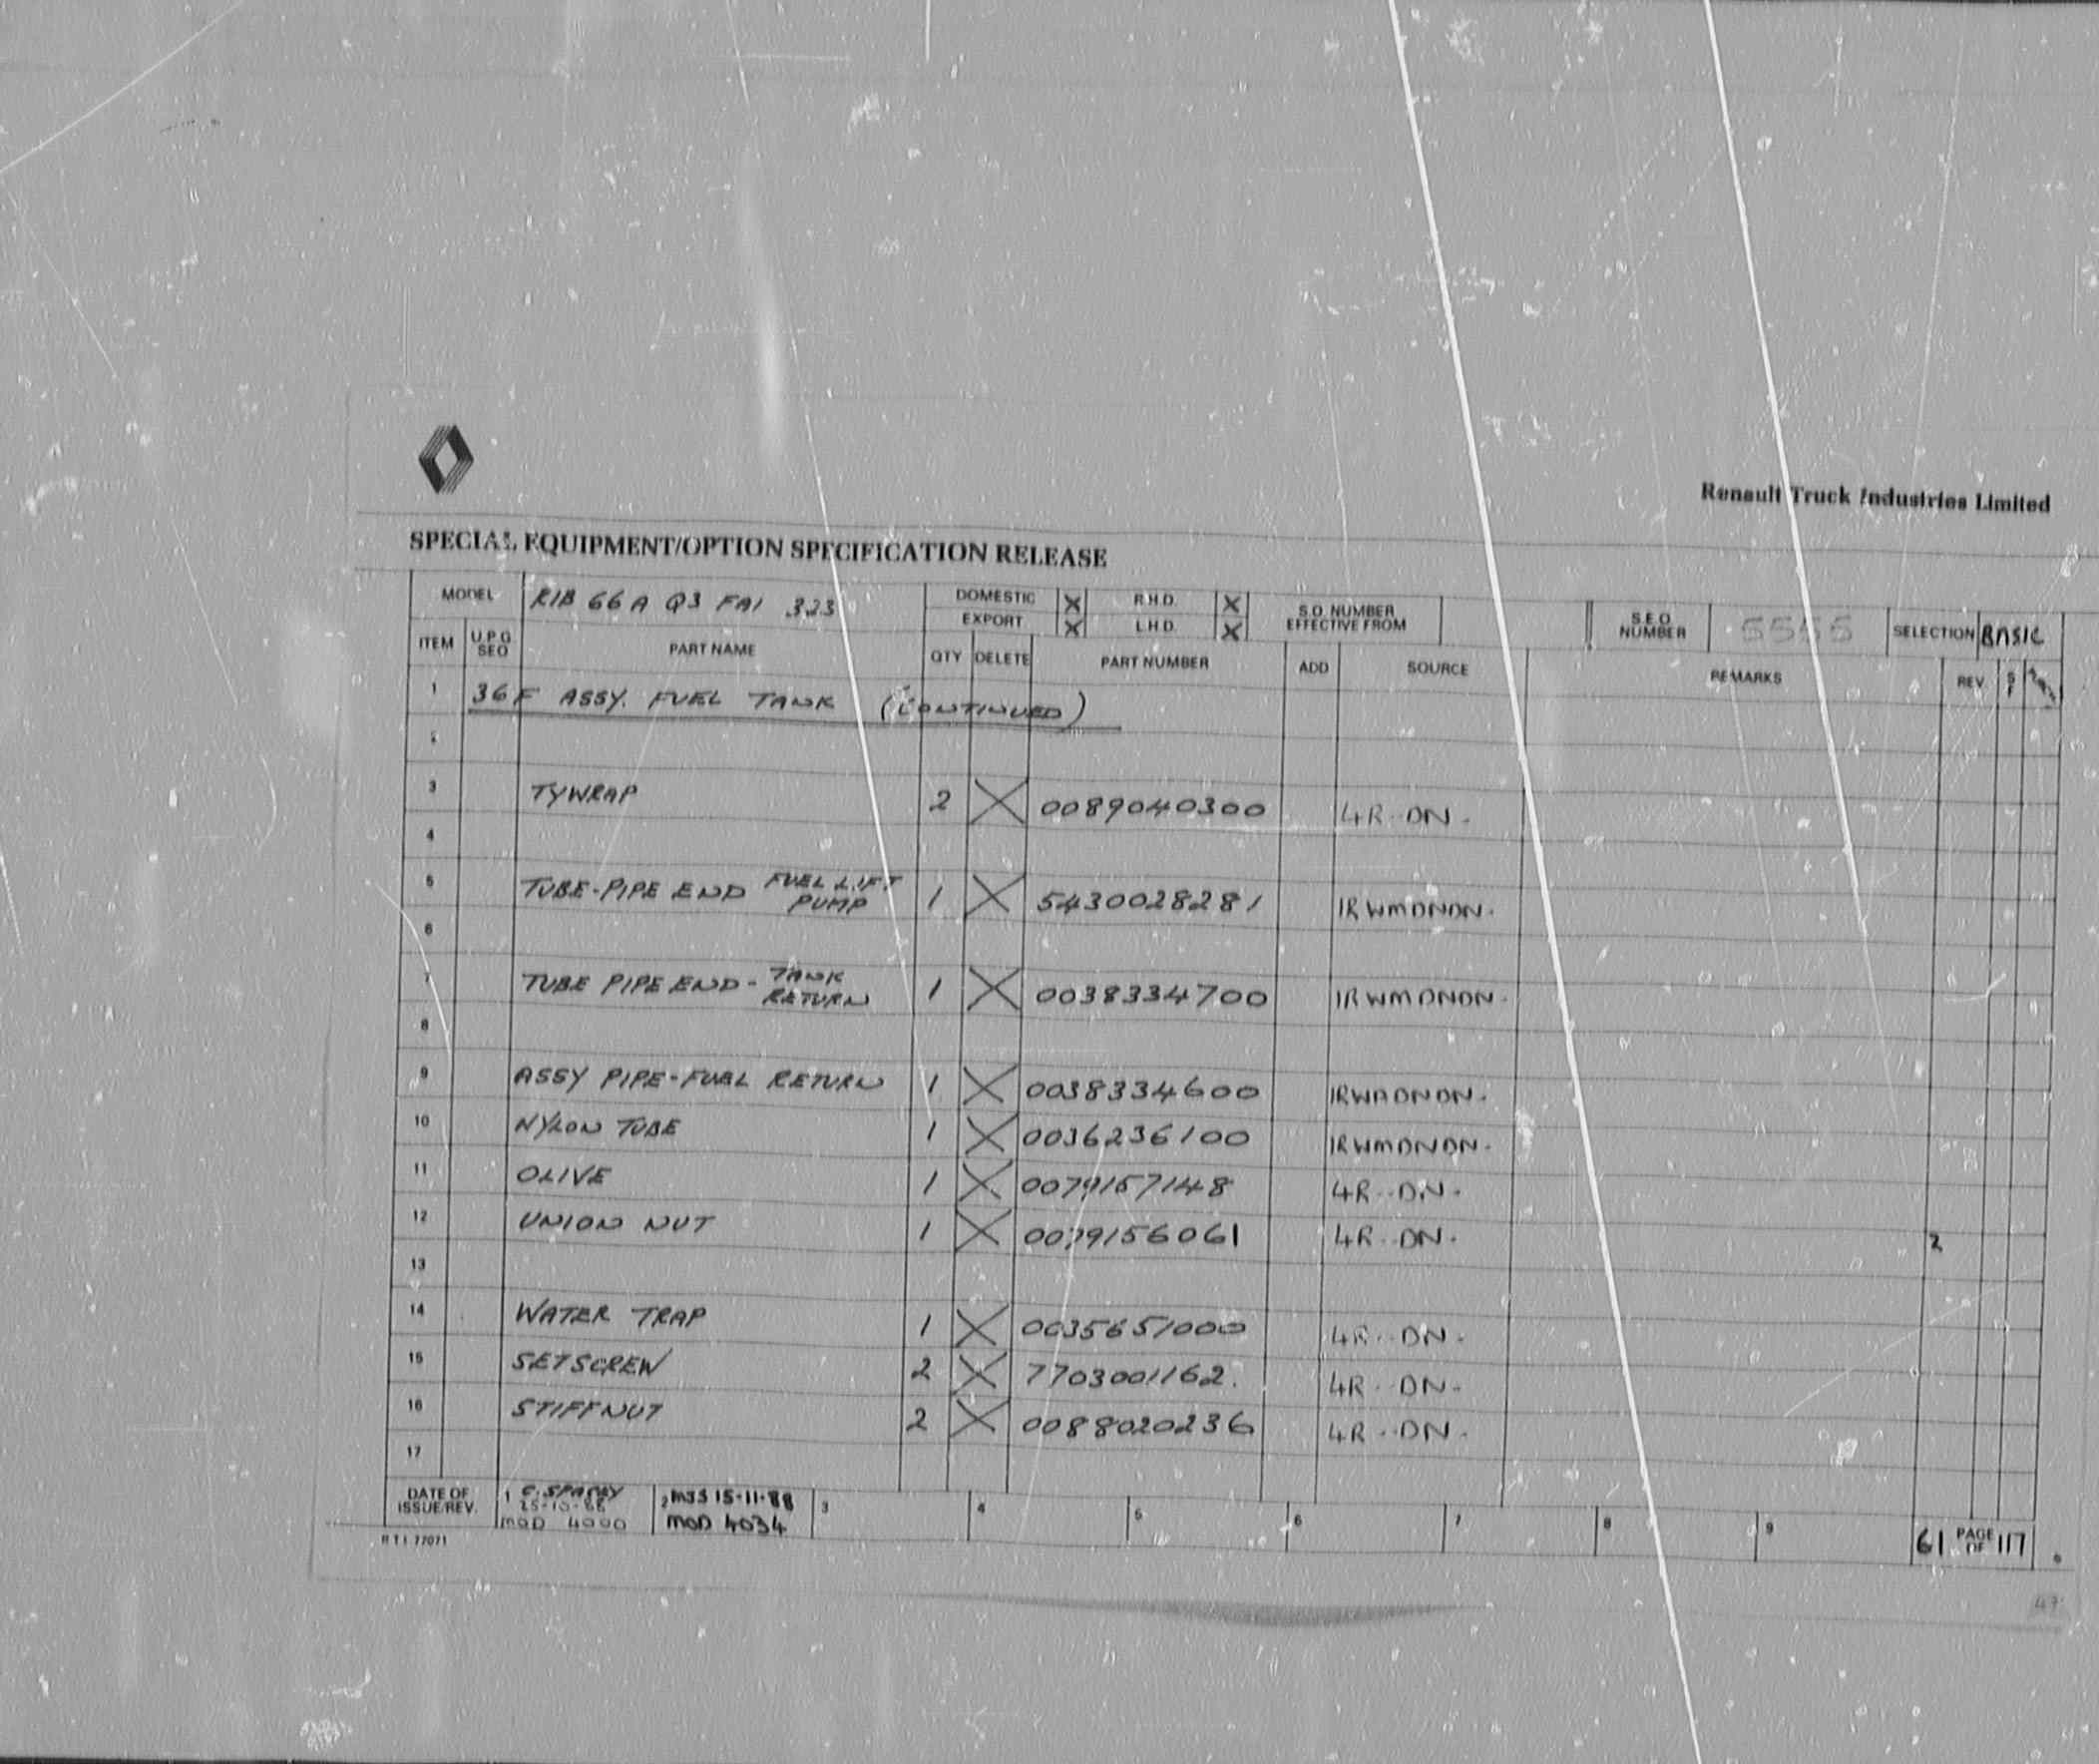 Renault Truck Industries Limited
SPECIAL EQUIPMENT/OPTION SPECIFICATION RELEASE
MODEL R1B 66A Q3 FA1 323 DOMESTIC X R.H.D. X S.O. NUMBER EFFECTIVE FROM S.E.O. NUMBER 5555 SELECTION BASIC
EXPORT X L.H.D. X
ITEM U.P.G. SEQ PART NAME QTY DELETE PART NUMBER ADD SOURCE REMARKS REV. S F
1 36F ASSY. FUEL TANK (CONTINUED)
2
3 TYWRAP 2 X 0089040300 4R··DN·
4
5 TUBE-PIPE END FUEL LIFT PUMP 1 X 5430028281 1RWMDNDN·
6
7 TUBE PIPE END - TANK RETURN 1 X 0038334700 1RWMDNDN·
8
9 ASSY PIPE-FUEL RETURN 1 X 0038334600 1RWADNDN·
10 NYLON TUBE 1 X 0036236100 1RWMDNDN·
11 OLIVE 1 X 0079157148 4R··DN·
12 UNION NUT 1 X 0079156061 4R··DN· 2
13
14 WATER TRAP 1 X 0035651000 4R··DN·
15 SETSCREW 2 X 7703001162. 4R··DN·
16 STIFFNUT 2 X 0088020236 4R··DN·
17
DATE OF ISSUE/REV. 1 C. SPACEY 25-10-88 MOD 4000 2 MJS 15-11-88 MOD 4034 3 4 5 6 7 8 9 61 PAGE OF 117
R T I 77071
47